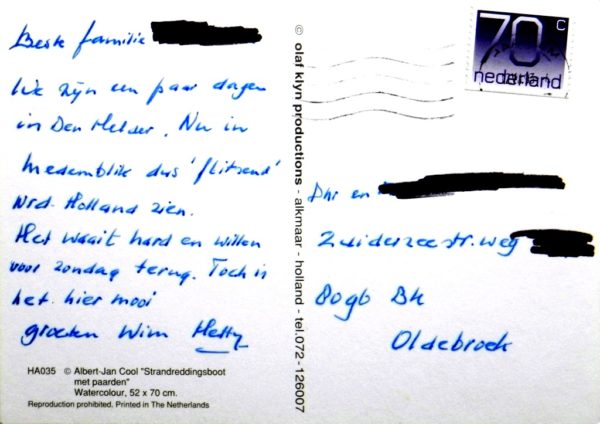 Beste familie
We zijn een paar dagen
in Den Helder. Nu in
Medemblik dus 'flitsend'
Nrd. Holland zien.
Het waait hard en willen
voor zondag terug. Toch is
het hier mooi
groeten Wim Hetty
HA035 © Albert-Jan Cool "Strandreddingsboot
met paarden"
Watercolour, 52 x 70 cm.
Reproduction prohibited. Printed in The Netherlands
© olaf klyn productions - alkmaar - holland - tel.072-126007
70 c
nederland
Dhr en
Zuiderzeestr.weg
8096 BK
Oldebroek